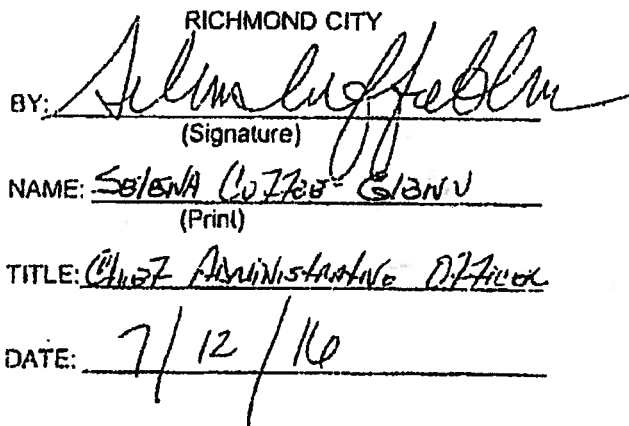 RICHMOND CITY
BY: Selena Cuffee Glenn
(Signature)
NAME: SELENA CUFFEE-GLENN
(Print)
TITLE: CHIEF ADMINISTRATIVE OFFICER
DATE: 7/12/16